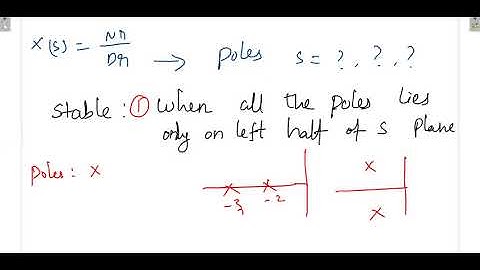 X(s) = Nr/Dr → Poles s = ?, ?, ?
Stable : ① When all the Poles lies
only on left half of S Plane
Poles : x
-3 -2